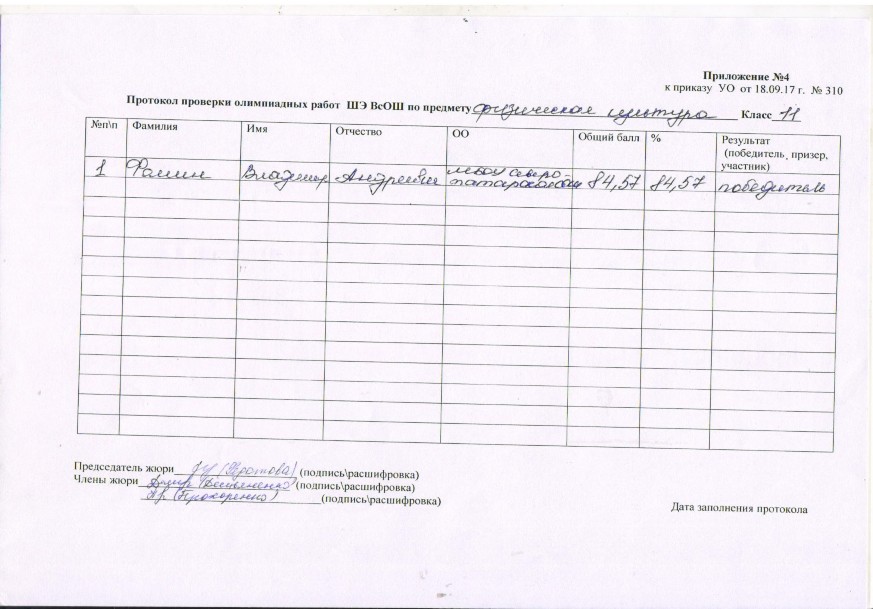 Приложение №4
к приказу УО от 18.09.17 г. № 310
Протокол проверки олимпиадных работ ШЭ ВсОШ по предмету физическая культура Класс 11
№п\п Фамилия Имя Отчество ОО Общий балл % Результат
(победитель, призер,
участник)
1 Фомин Владимир Андреевич МБОУ Северо- 84,57 84,57 победитель
Председатель жюри (Фротова) (подпись\расшифровка)
Члены жюри (подпись\расшифровка)
(Прохоренко) (подпись\расшифровка)
Дата заполнения протокола